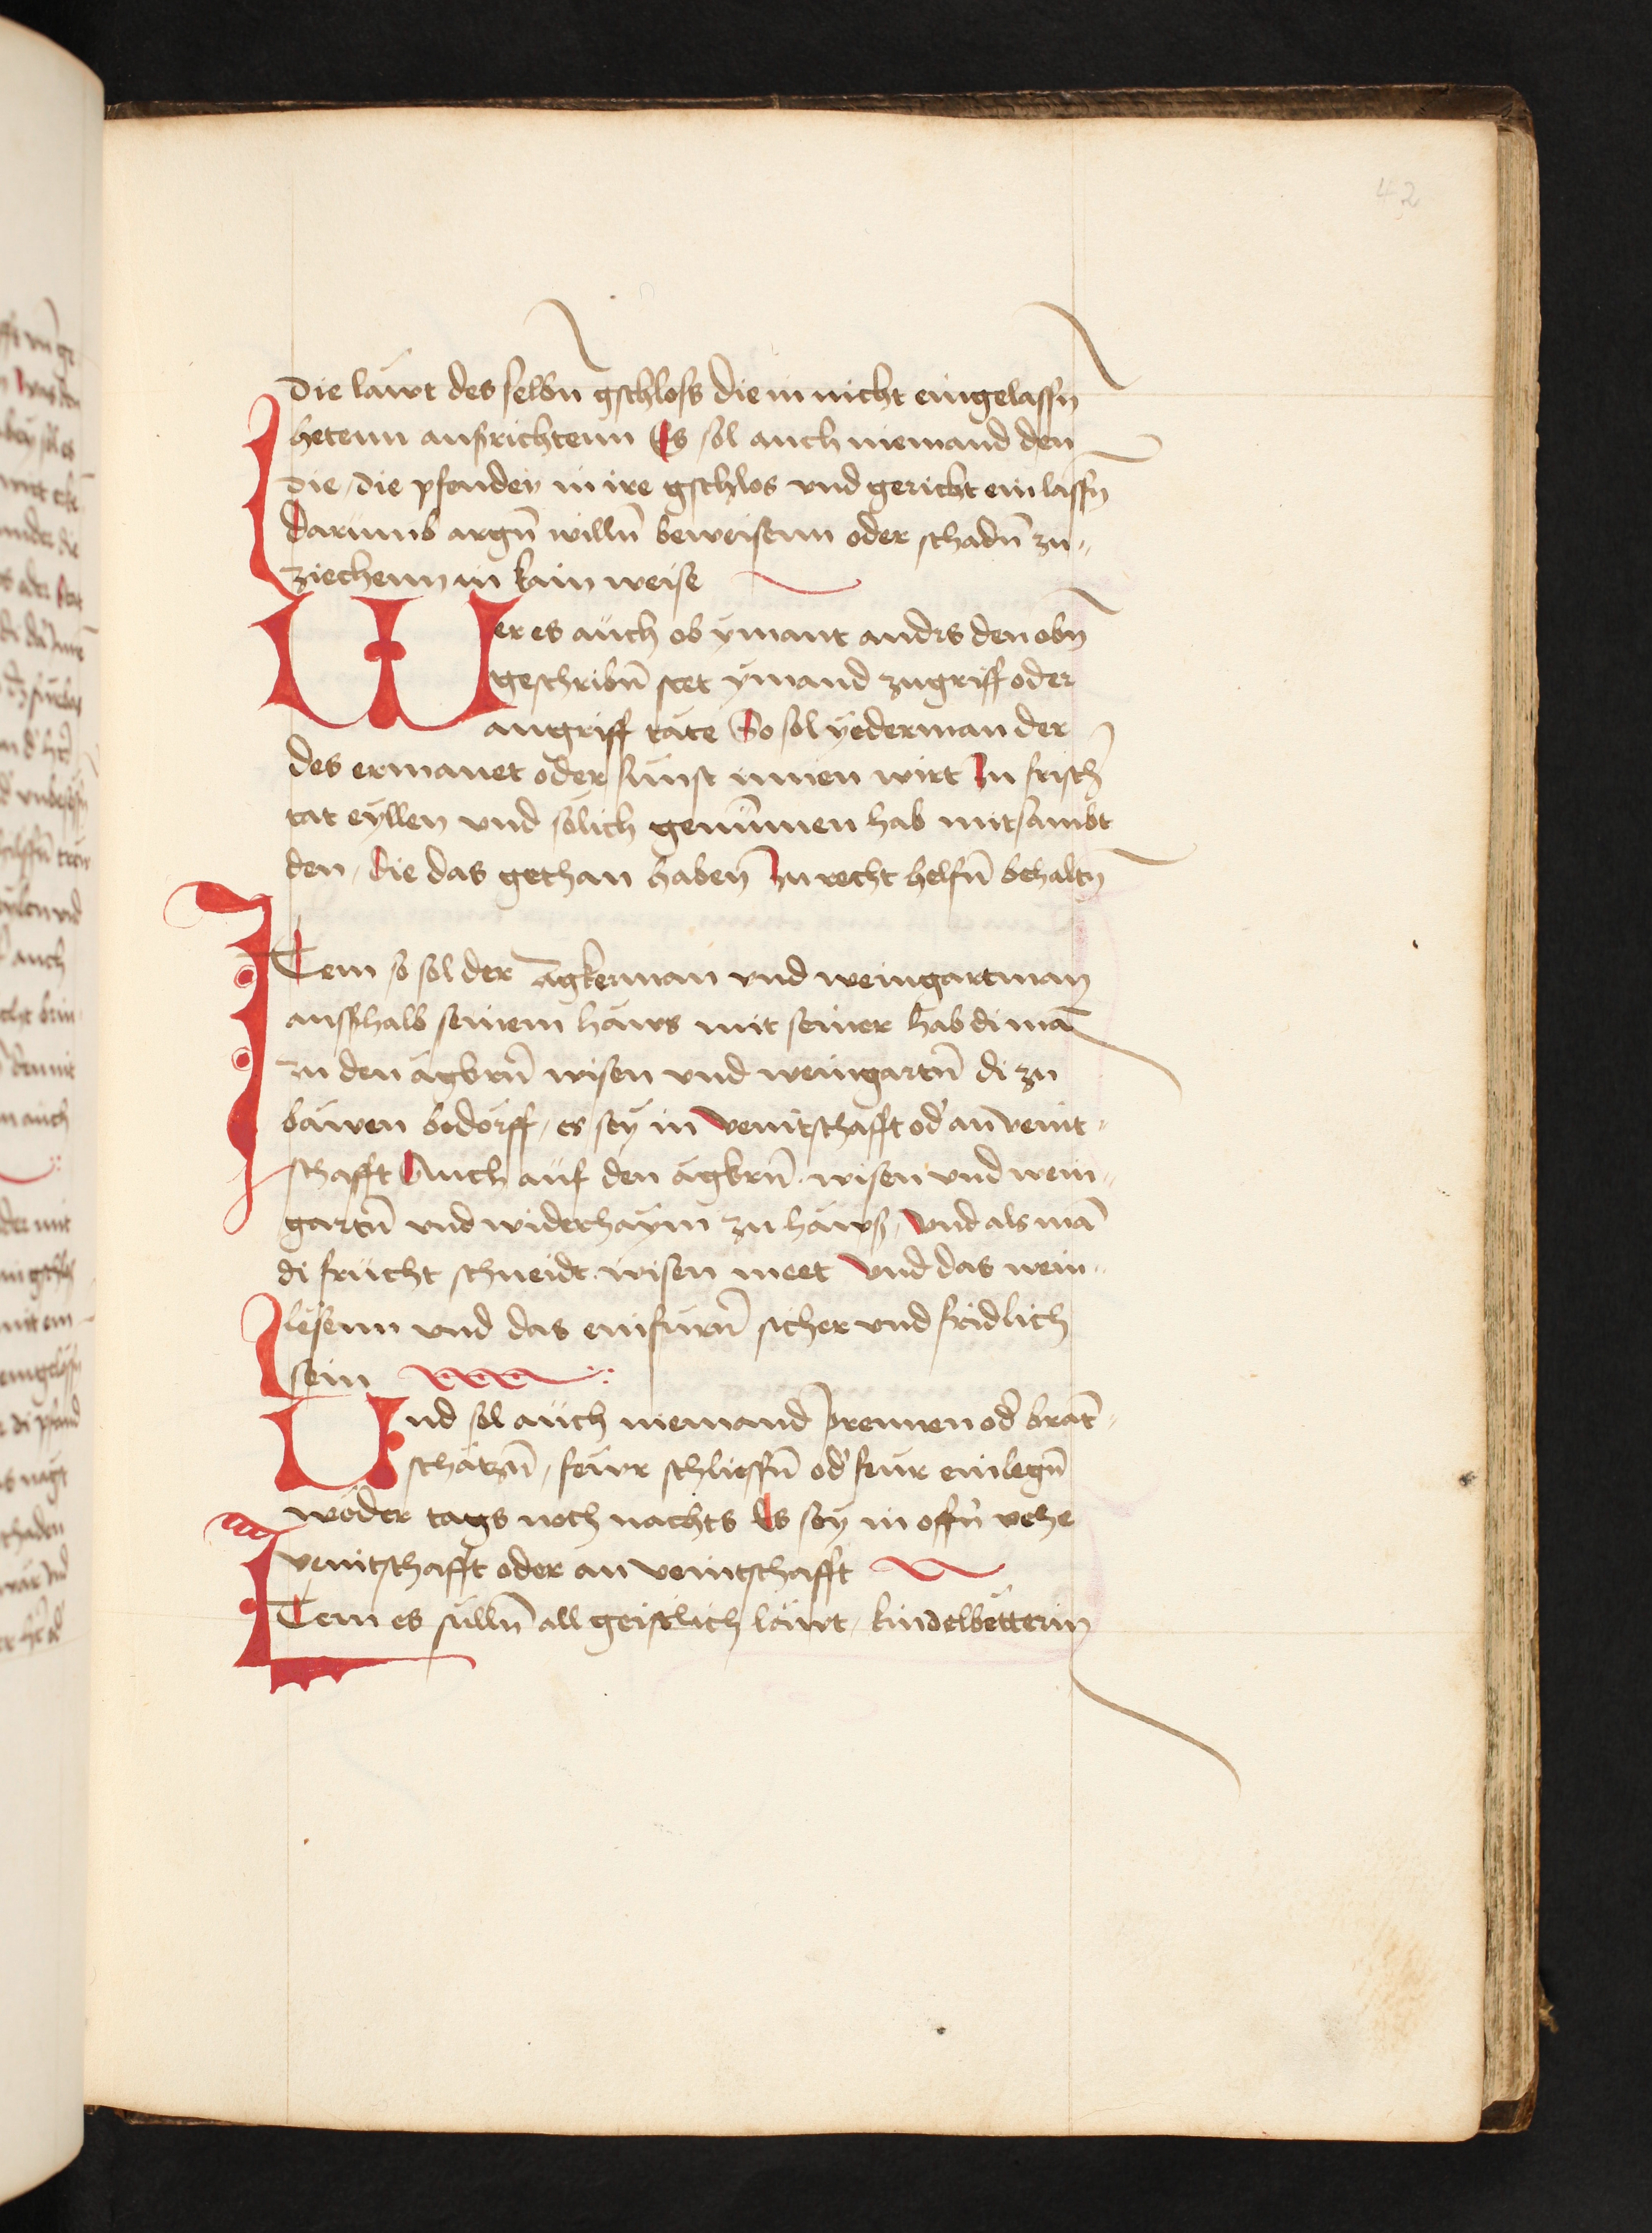 42
die läwt des selbn̄ gschloss die in nicht eingelassn̄
hetenn ausrichtenn Es sol auch niemand den
die / die pfender in ire gschlos vnd gericht einlassn̄
darumb argn̄ willn̄ beweisenn oder schadn̄ zu⸗
ziechenn in kain weise
Wer es auch ob ymant andrs den obn̄
geschribn̄ stet ymand zugriff oder
angriff täte So sol yederman der
des ermanet oder sunst innen wirt zu frisch̄
tat eyllen vnd solich genummen hab mitsambt
den / die das gethan haben̄ zu recht helfn̄ behaltn̄
Item so sol der Agkerman vnd weingartman
ausshalb seinem haws mit seiner hab di mā
zu den agkrn̄ wisen vnd weingartn̄ di zu
bawen bedorff / es sey in veintschafft od' an veint⸗
schafft Auch auf den agkrn̄ . wisen vnd wein⸗
gartn̄ vnd widerhaym zu haws / vnd als mā
di frucht schneidt . wisen meet vnd das wein⸗
lesenn vnd das einfurn̄ sicher vnd fridlich
sein
Und sol auch niemand prennen od' brāt⸗
schätzn̄ / fewr schiessn̄ od' feur einlegn̄
weder tags noch nachts Es sey in offn̄ vehe
veintschafft oder an veintschafft
Item es sulln̄ all geistlich läwt / kindelbetterin